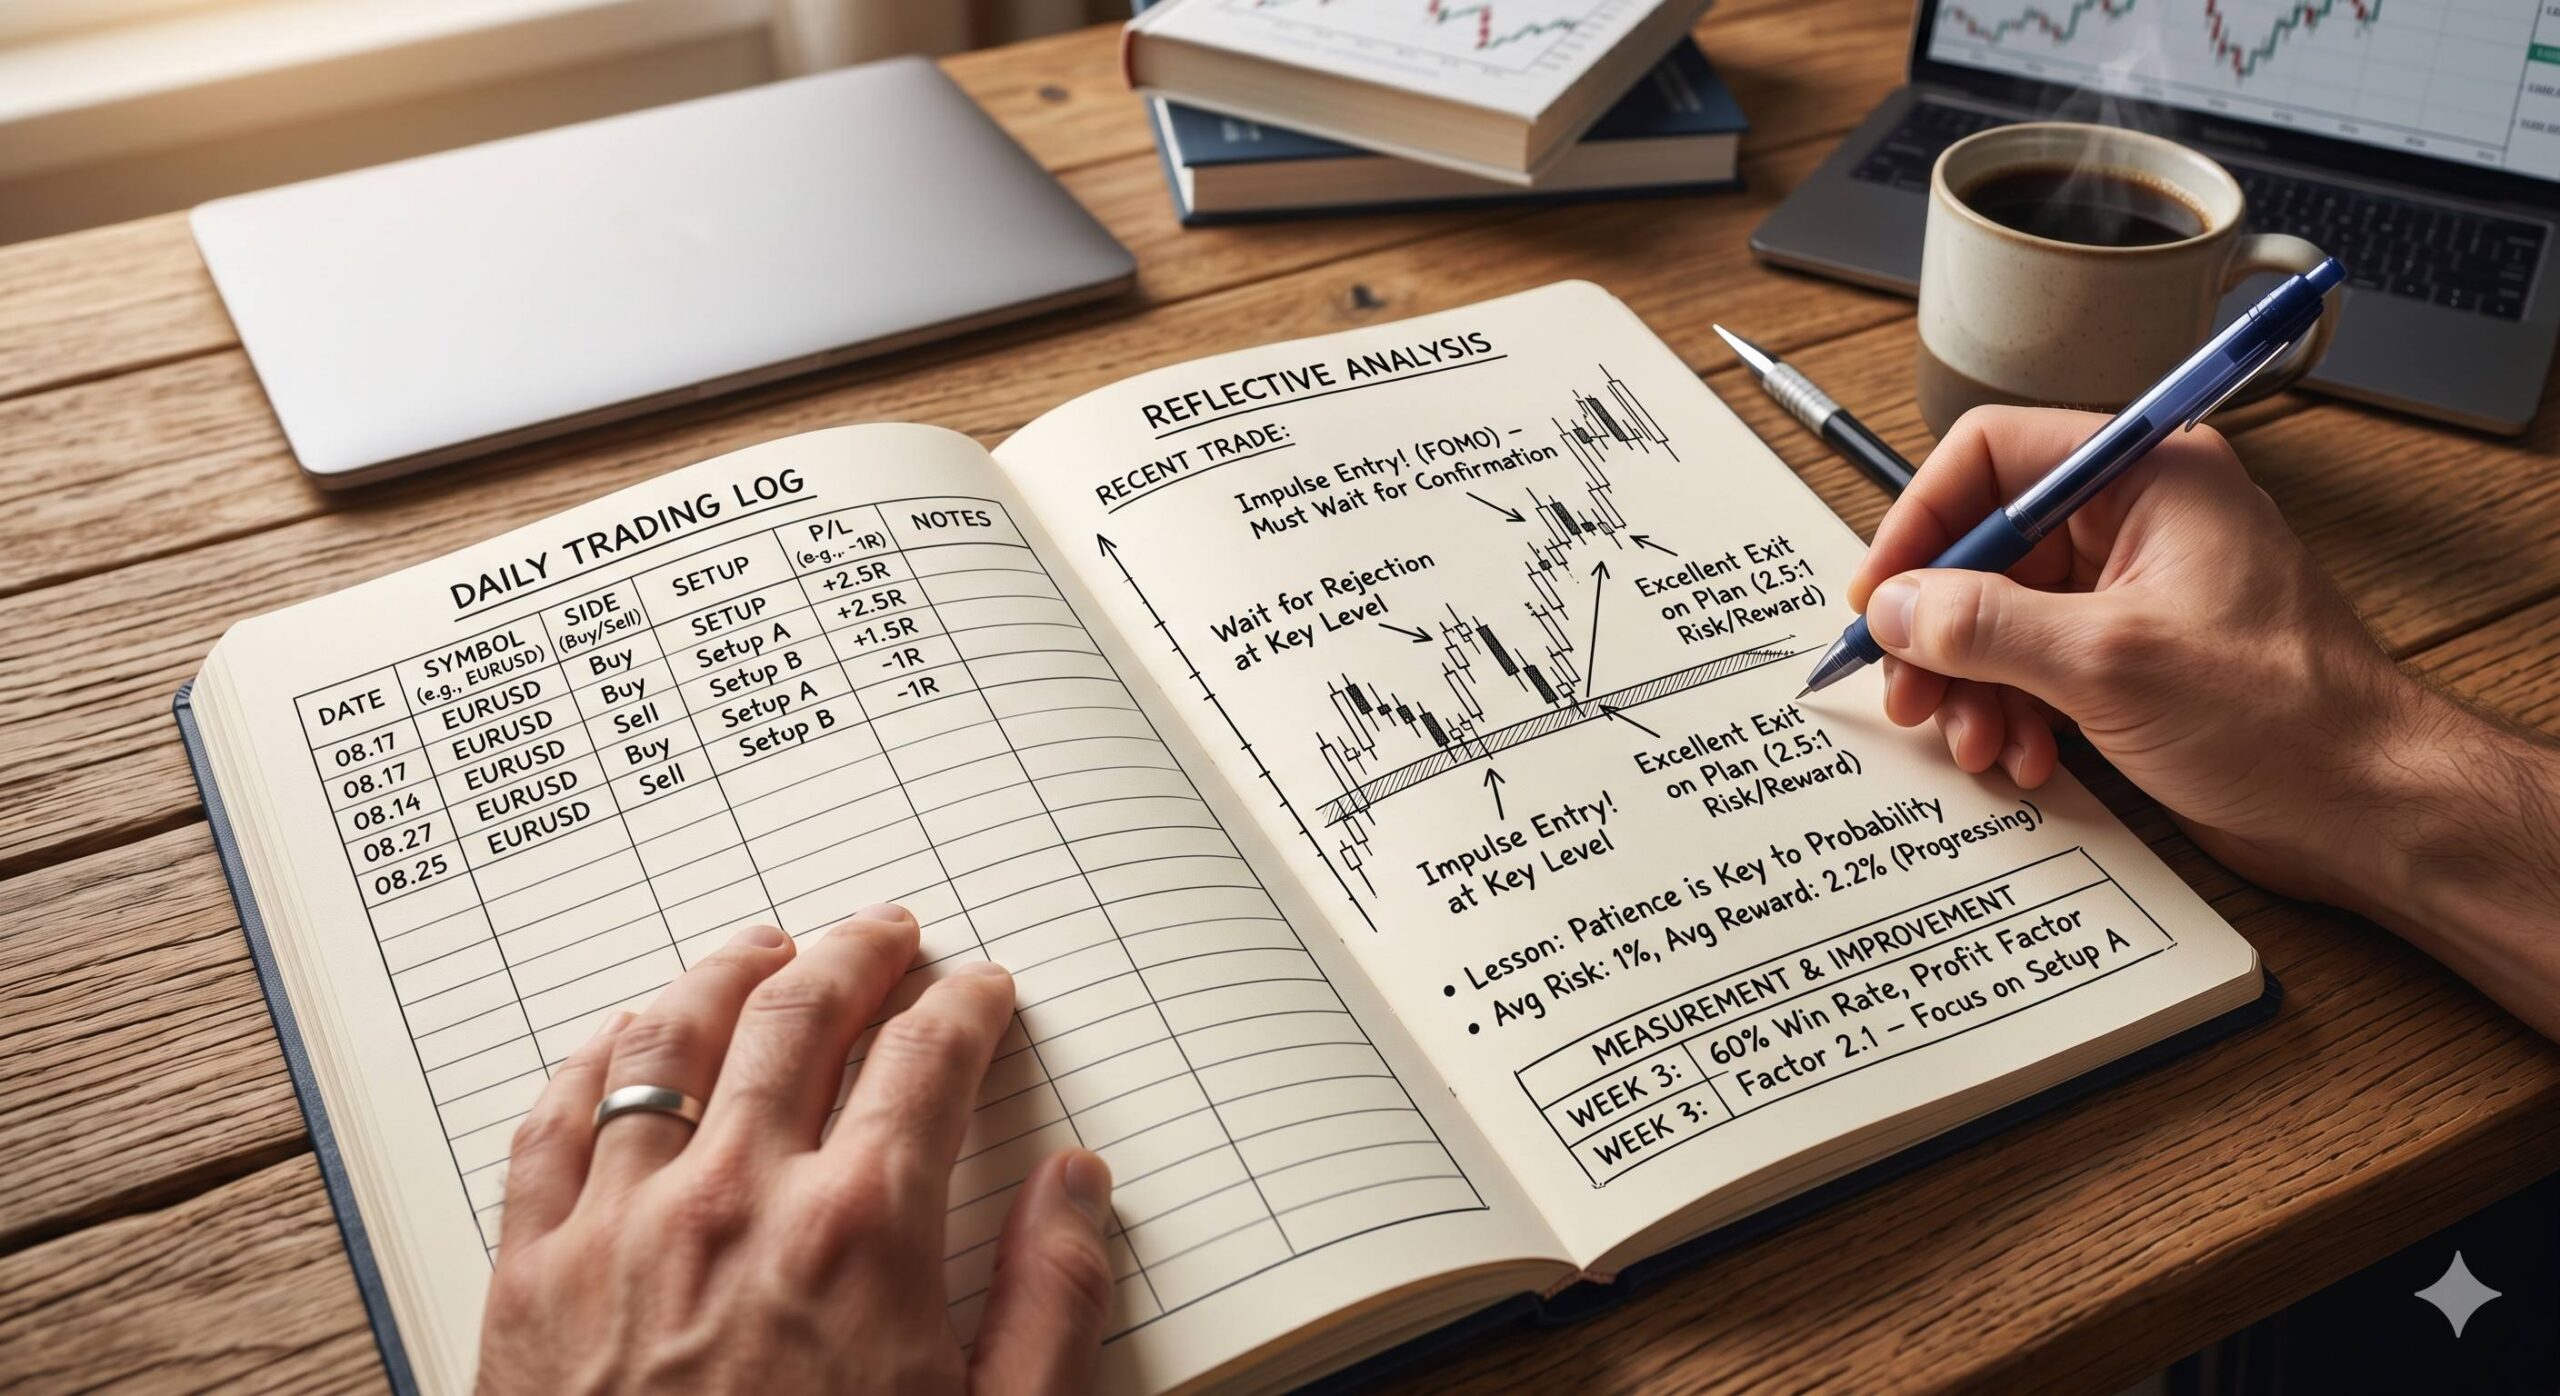 DAILY TRADING LOG
DATE SYMBOL (e.g., EURUSD) SIDE (Buy/Sell) SETUP P/L (e.g., -1R) NOTES
08.17 EURUSD Buy SETUP +2.5R
08.17 EURUSD Buy Setup A +2.5R
08.14 EURUSD Sell Setup B +1.5R
08.27 EURUSD Buy Setup A -1R
08.25 EURUSD Sell Setup B -1R
REFLECTIVE ANALYSIS
RECENT TRADE:
Impulse Entry! (FOMO) –
Must Wait for Confirmation
Wait for Rejection
at Key Level
Excellent Exit
on Plan (2.5:1
Risk/Reward)
Excellent Exit
on Plan (2.5:1
Risk/Reward)
Impulse Entry!
at Key Level
• Lesson: Patience is Key to Probability
• Avg Risk: 1%, Avg Reward: 2.2% (Progressing)
MEASUREMENT & IMPROVEMENT
WEEK 3: 60% Win Rate, Profit Factor
WEEK 3: Factor 2.1 – Focus on Setup A